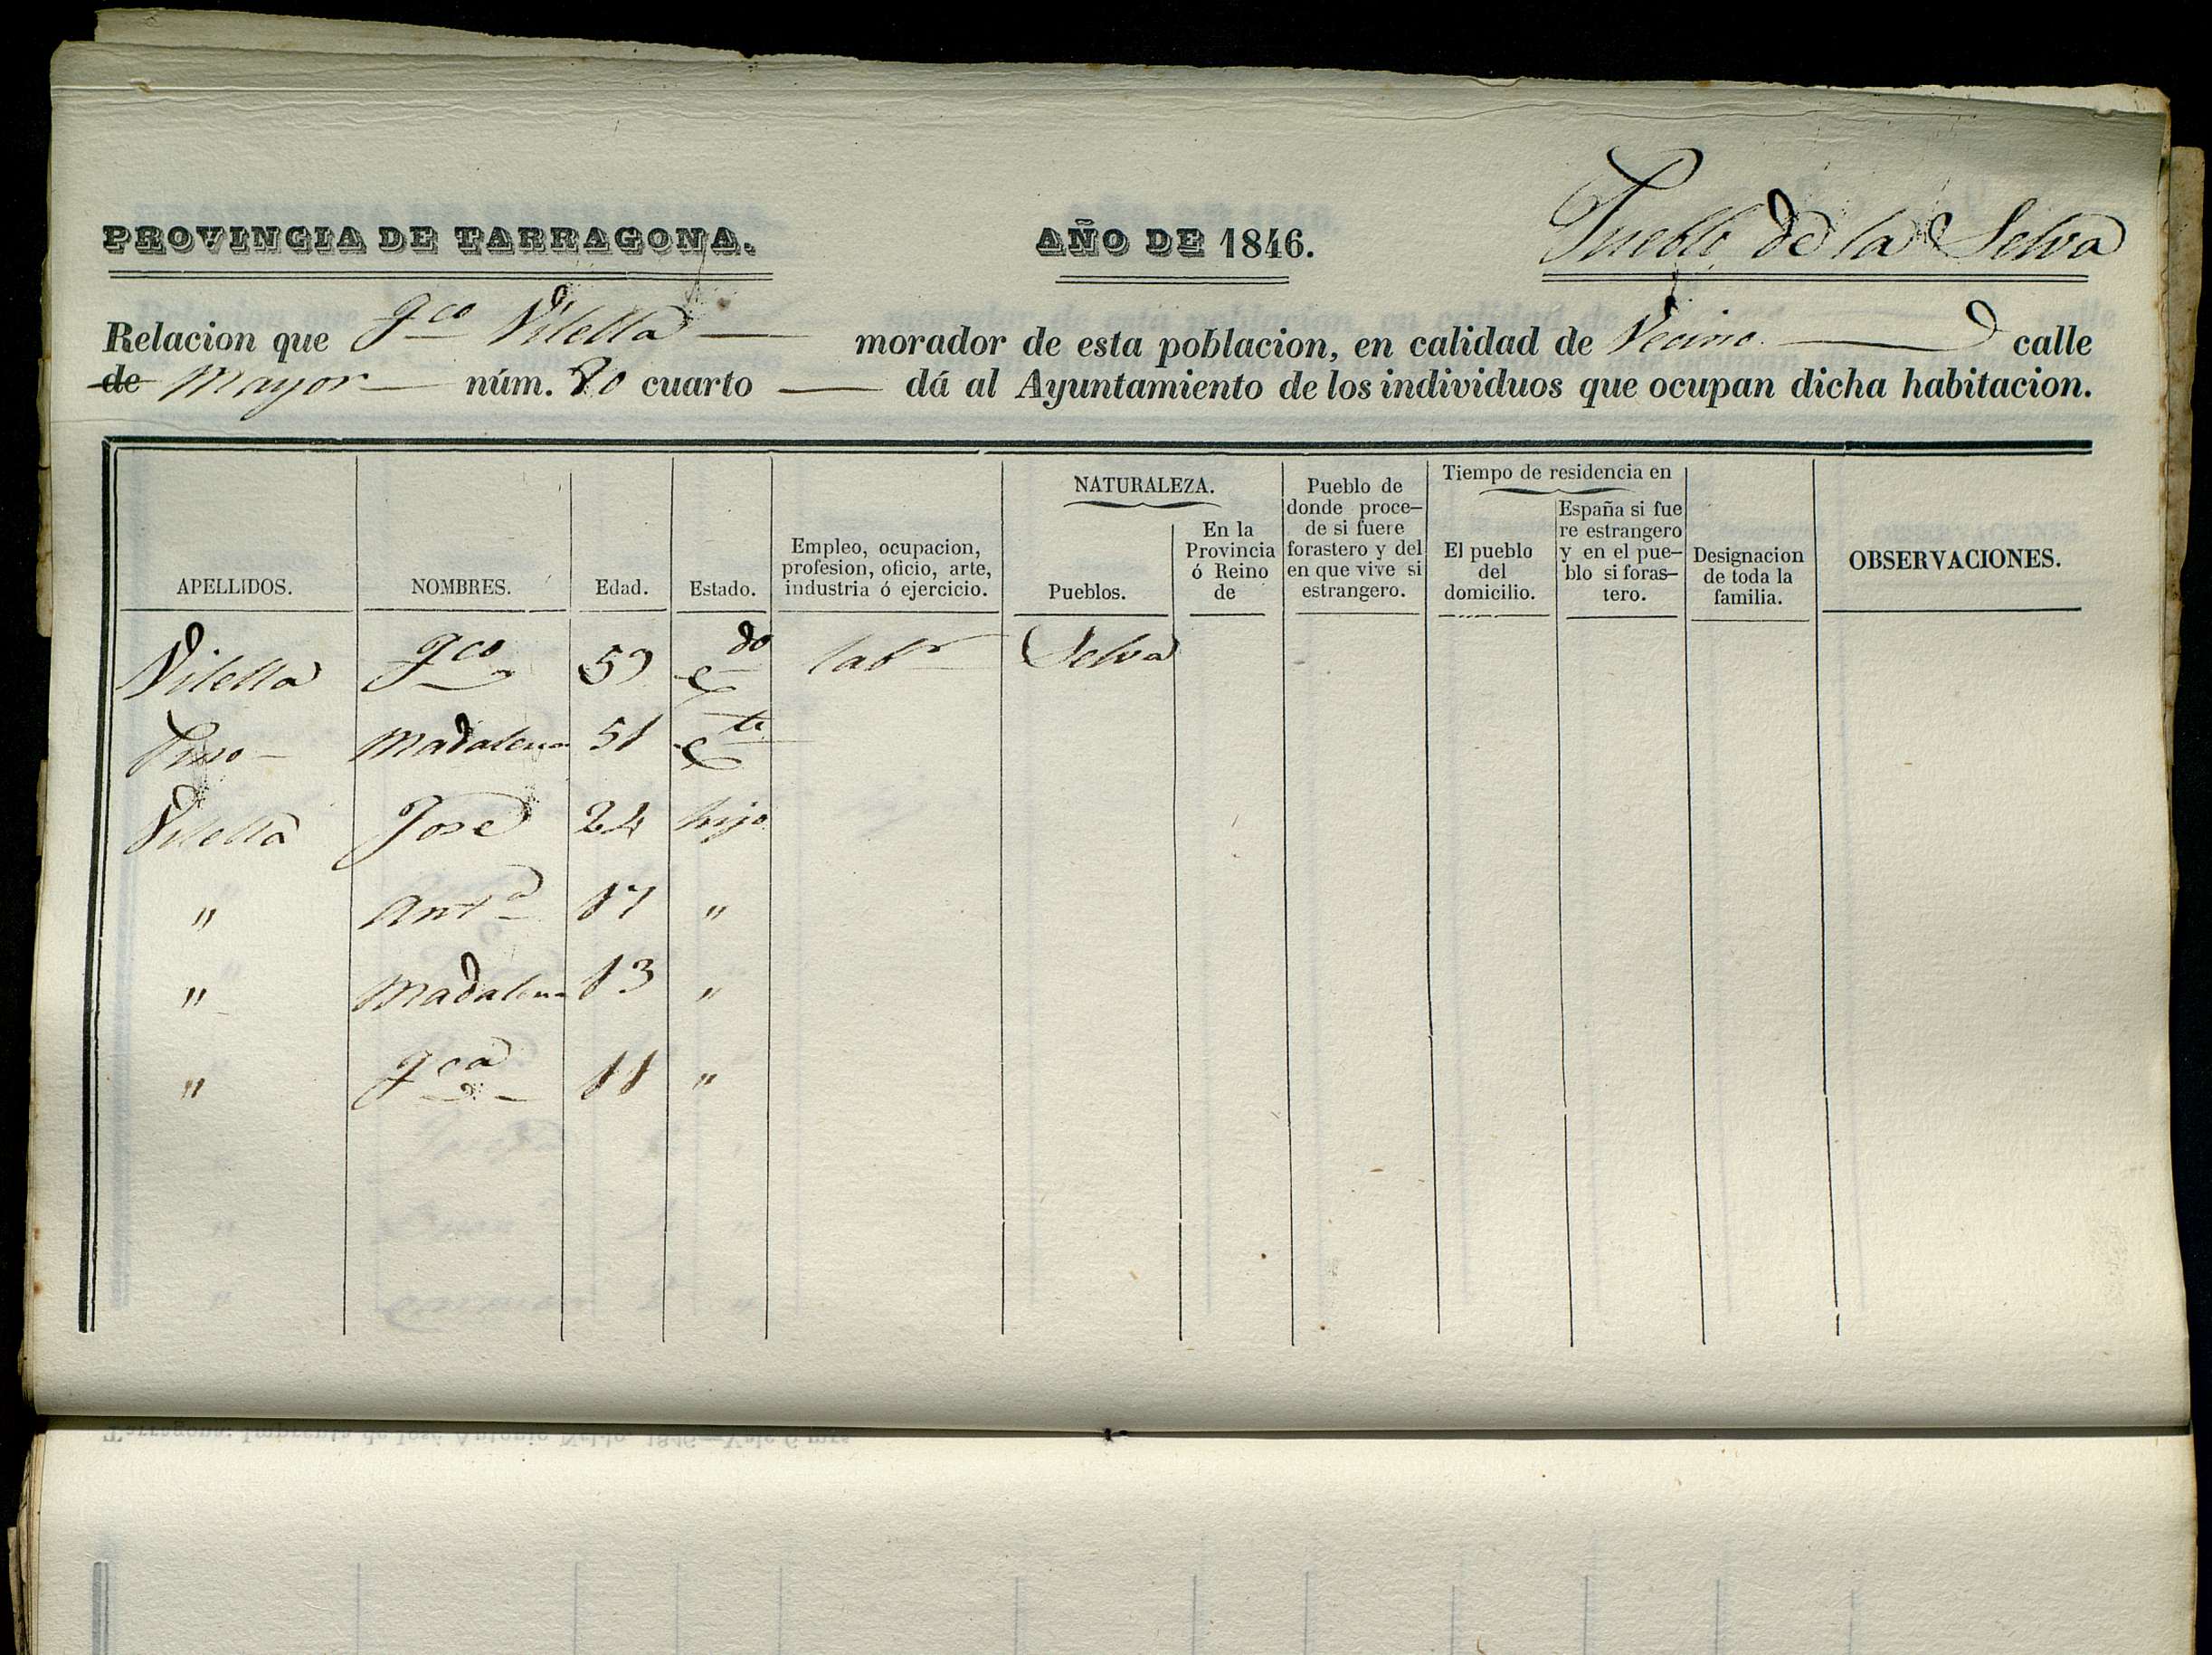 PROVINCIA DE TARRAGONA. AÑO DE 1846. Pueblo de la Selva
Relacion que Fco Vilella morador de esta poblacion, en calidad de Vecino calle
de Mayor núm. 20 cuarto — dá al Ayuntamiento de los individuos que ocupan dicha habitacion.
APELLIDOS.
NOMBRES.
Edad.
Estado.
Empleo, ocupacion,
profesion, oficio, arte,
industria ó ejercicio.
NATURALEZA.
Pueblos.
En la
Provincia
ó Reino
de
Pueblo de
donde proce-
de si fuere
forastero y del
en que vive si
estrangero.
Tiempo de residencia en
El pueblo
del
domicilio.
España si fue
re estrangero
y en el pue-
blo si foras-
tero.
Designacion
de toda la
familia.
OBSERVACIONES.
Vilella Fco 59 Cdo labr Selva
Madalena 51 Cta
Vilella José 24 hijo
" Anta 17 "
" Madalena 13 "
" Fca 11 "